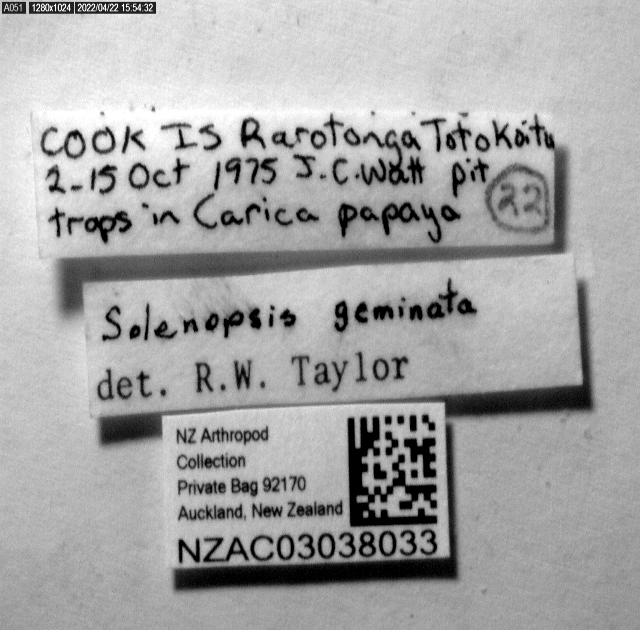 A051 1280x1024 2022/04/22 15:54:32
COOK IS Rarotonga Totokoitu
2-15 Oct 1975 J.C.Watt pit
traps in Carica papaya 22
Solenopsis geminata
det. R.W. Taylor
NZ Arthropod
Collection
Private Bag 92170
Auckland, New Zealand
NZAC03038033